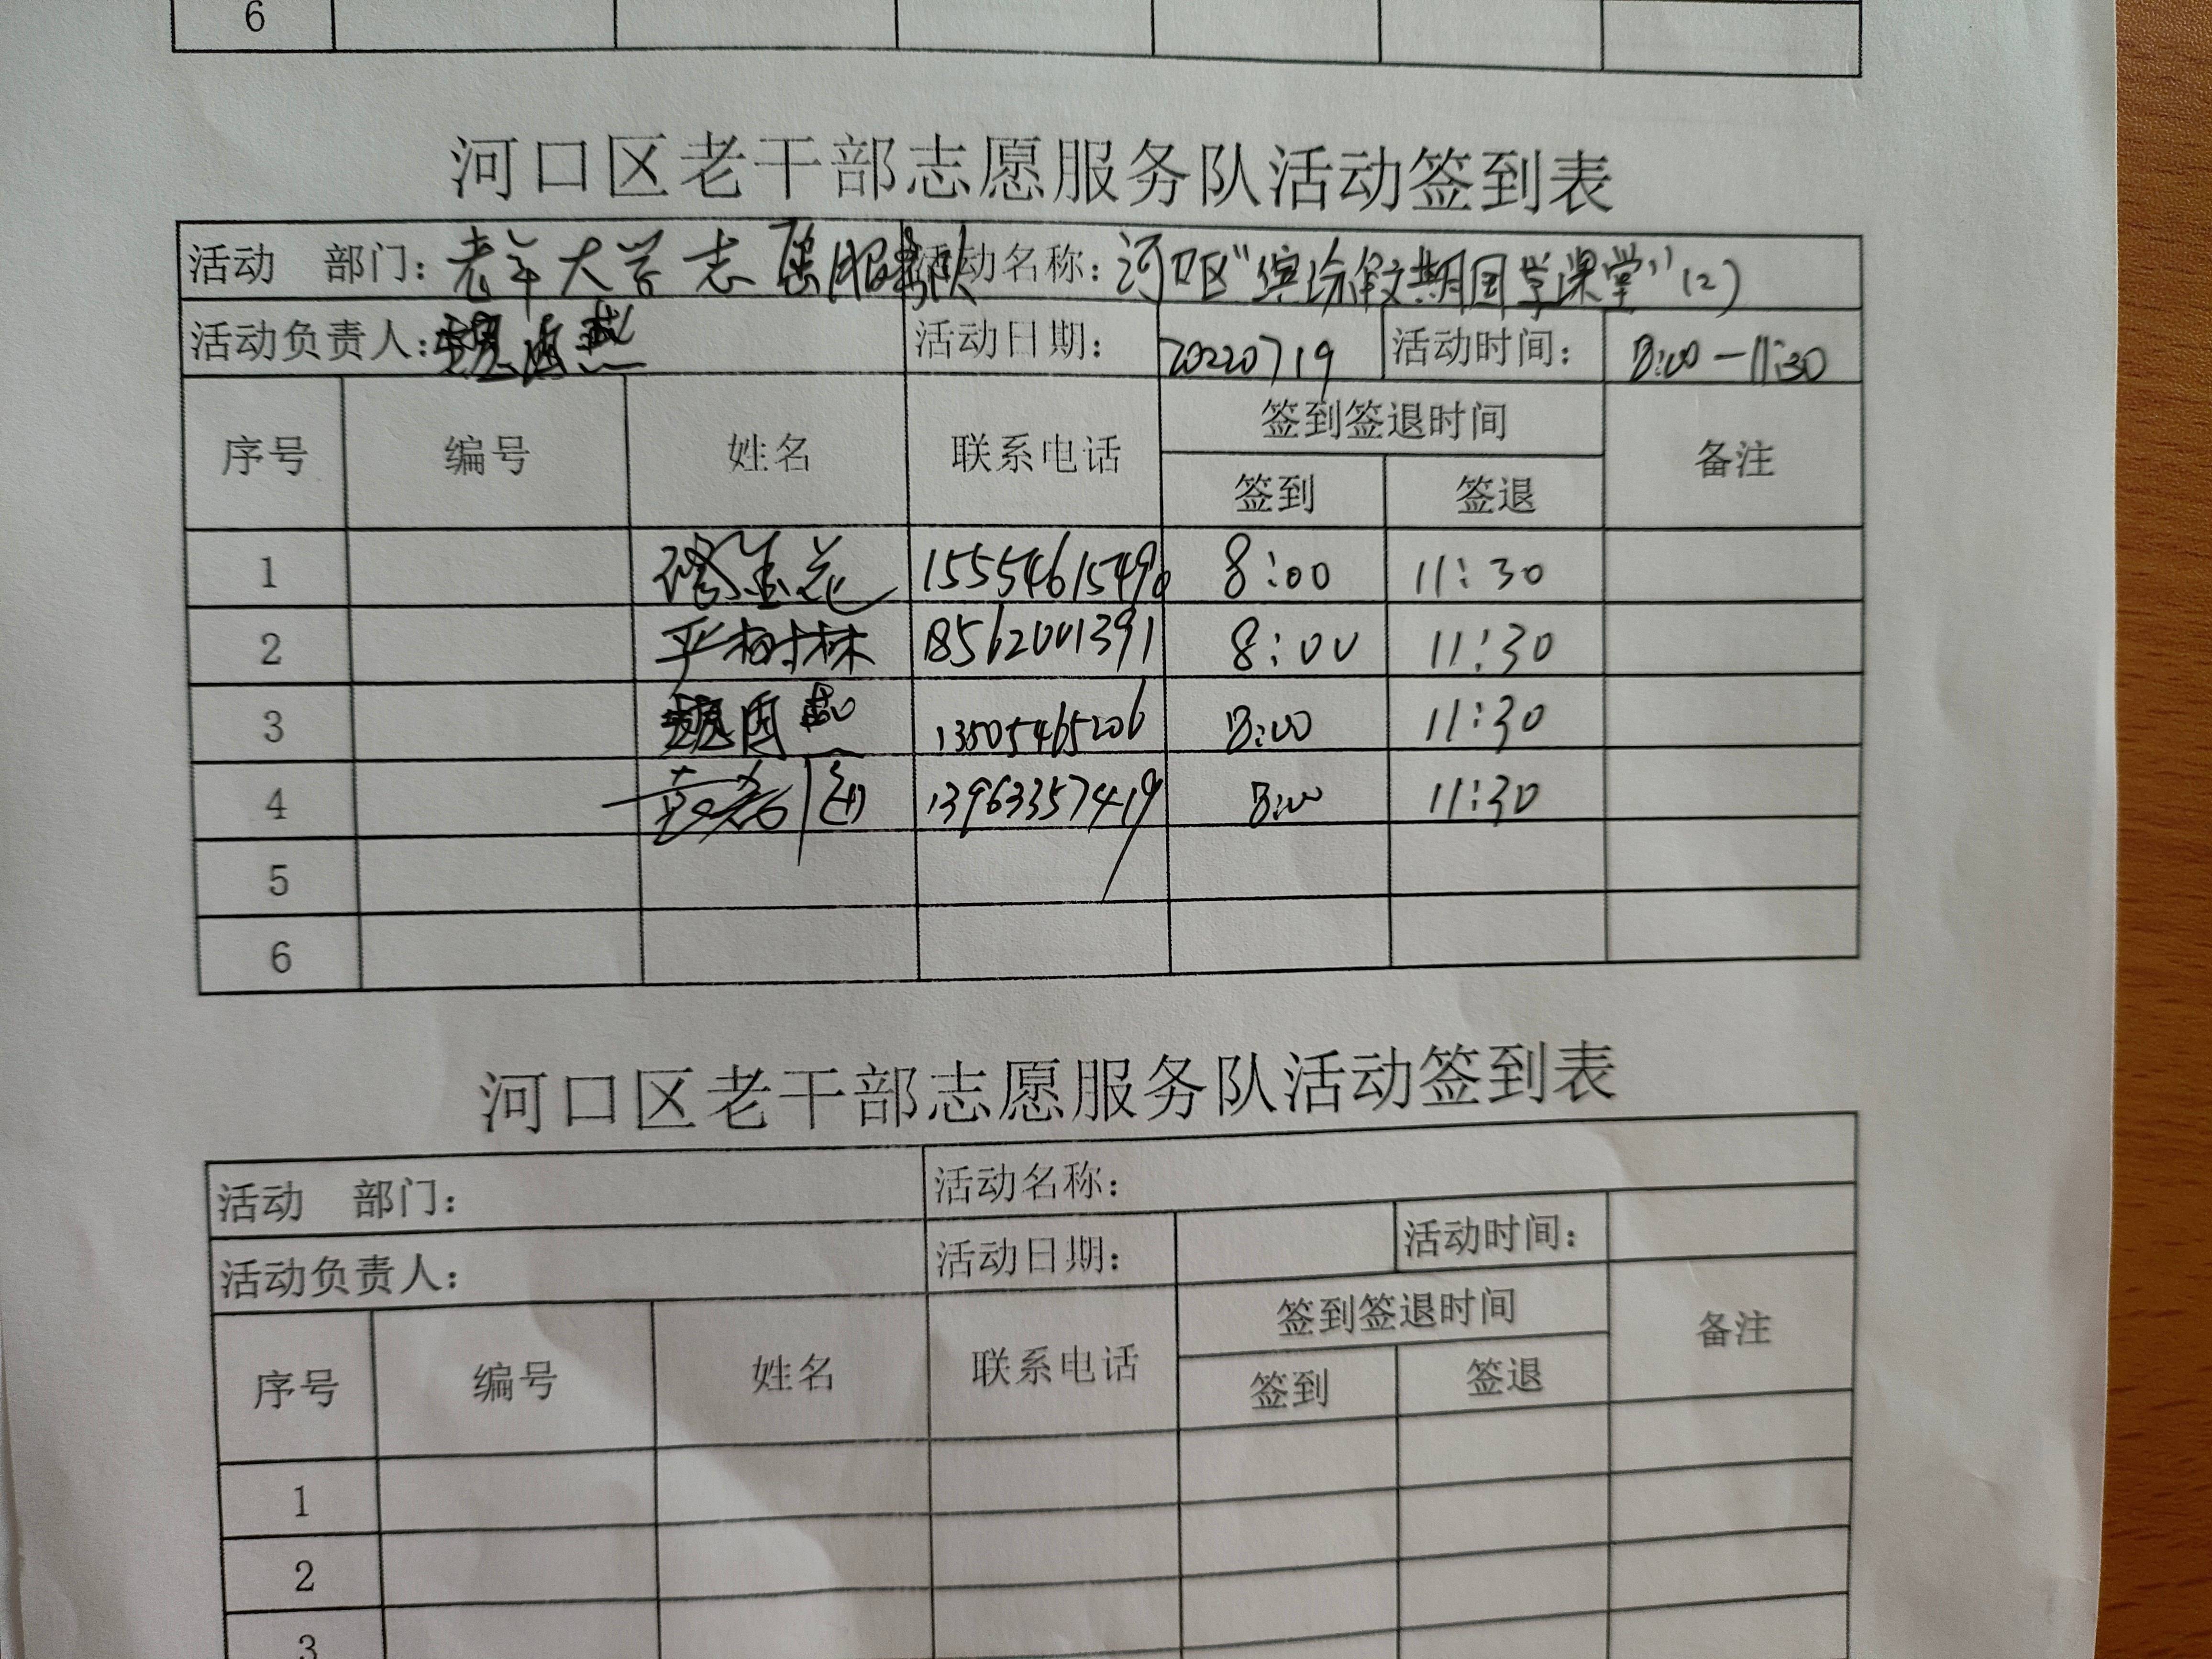 6
河口区老干部志愿服务队活动签到表
活动 部门：老年大学志愿服务队 活动名称：河口区“缤纷假期国学课堂”(2)
活动负责人： 活动日期： 20220719 活动时间： 8:00-11:30
序号 编号 姓名 联系电话 签到签退时间 备注
签到 签退
1 15554615490 8:00 11:30
2 严树林 18562001391 8:00 11:30
3 13505465206 8:00 11:30
4 13963357419 8:00 11:30
5
6
河口区老干部志愿服务队活动签到表
活动 部门： 活动名称：
活动负责人： 活动日期： 活动时间：
序号 编号 姓名 联系电话 签到签退时间 备注
签到 签退
1
2
3